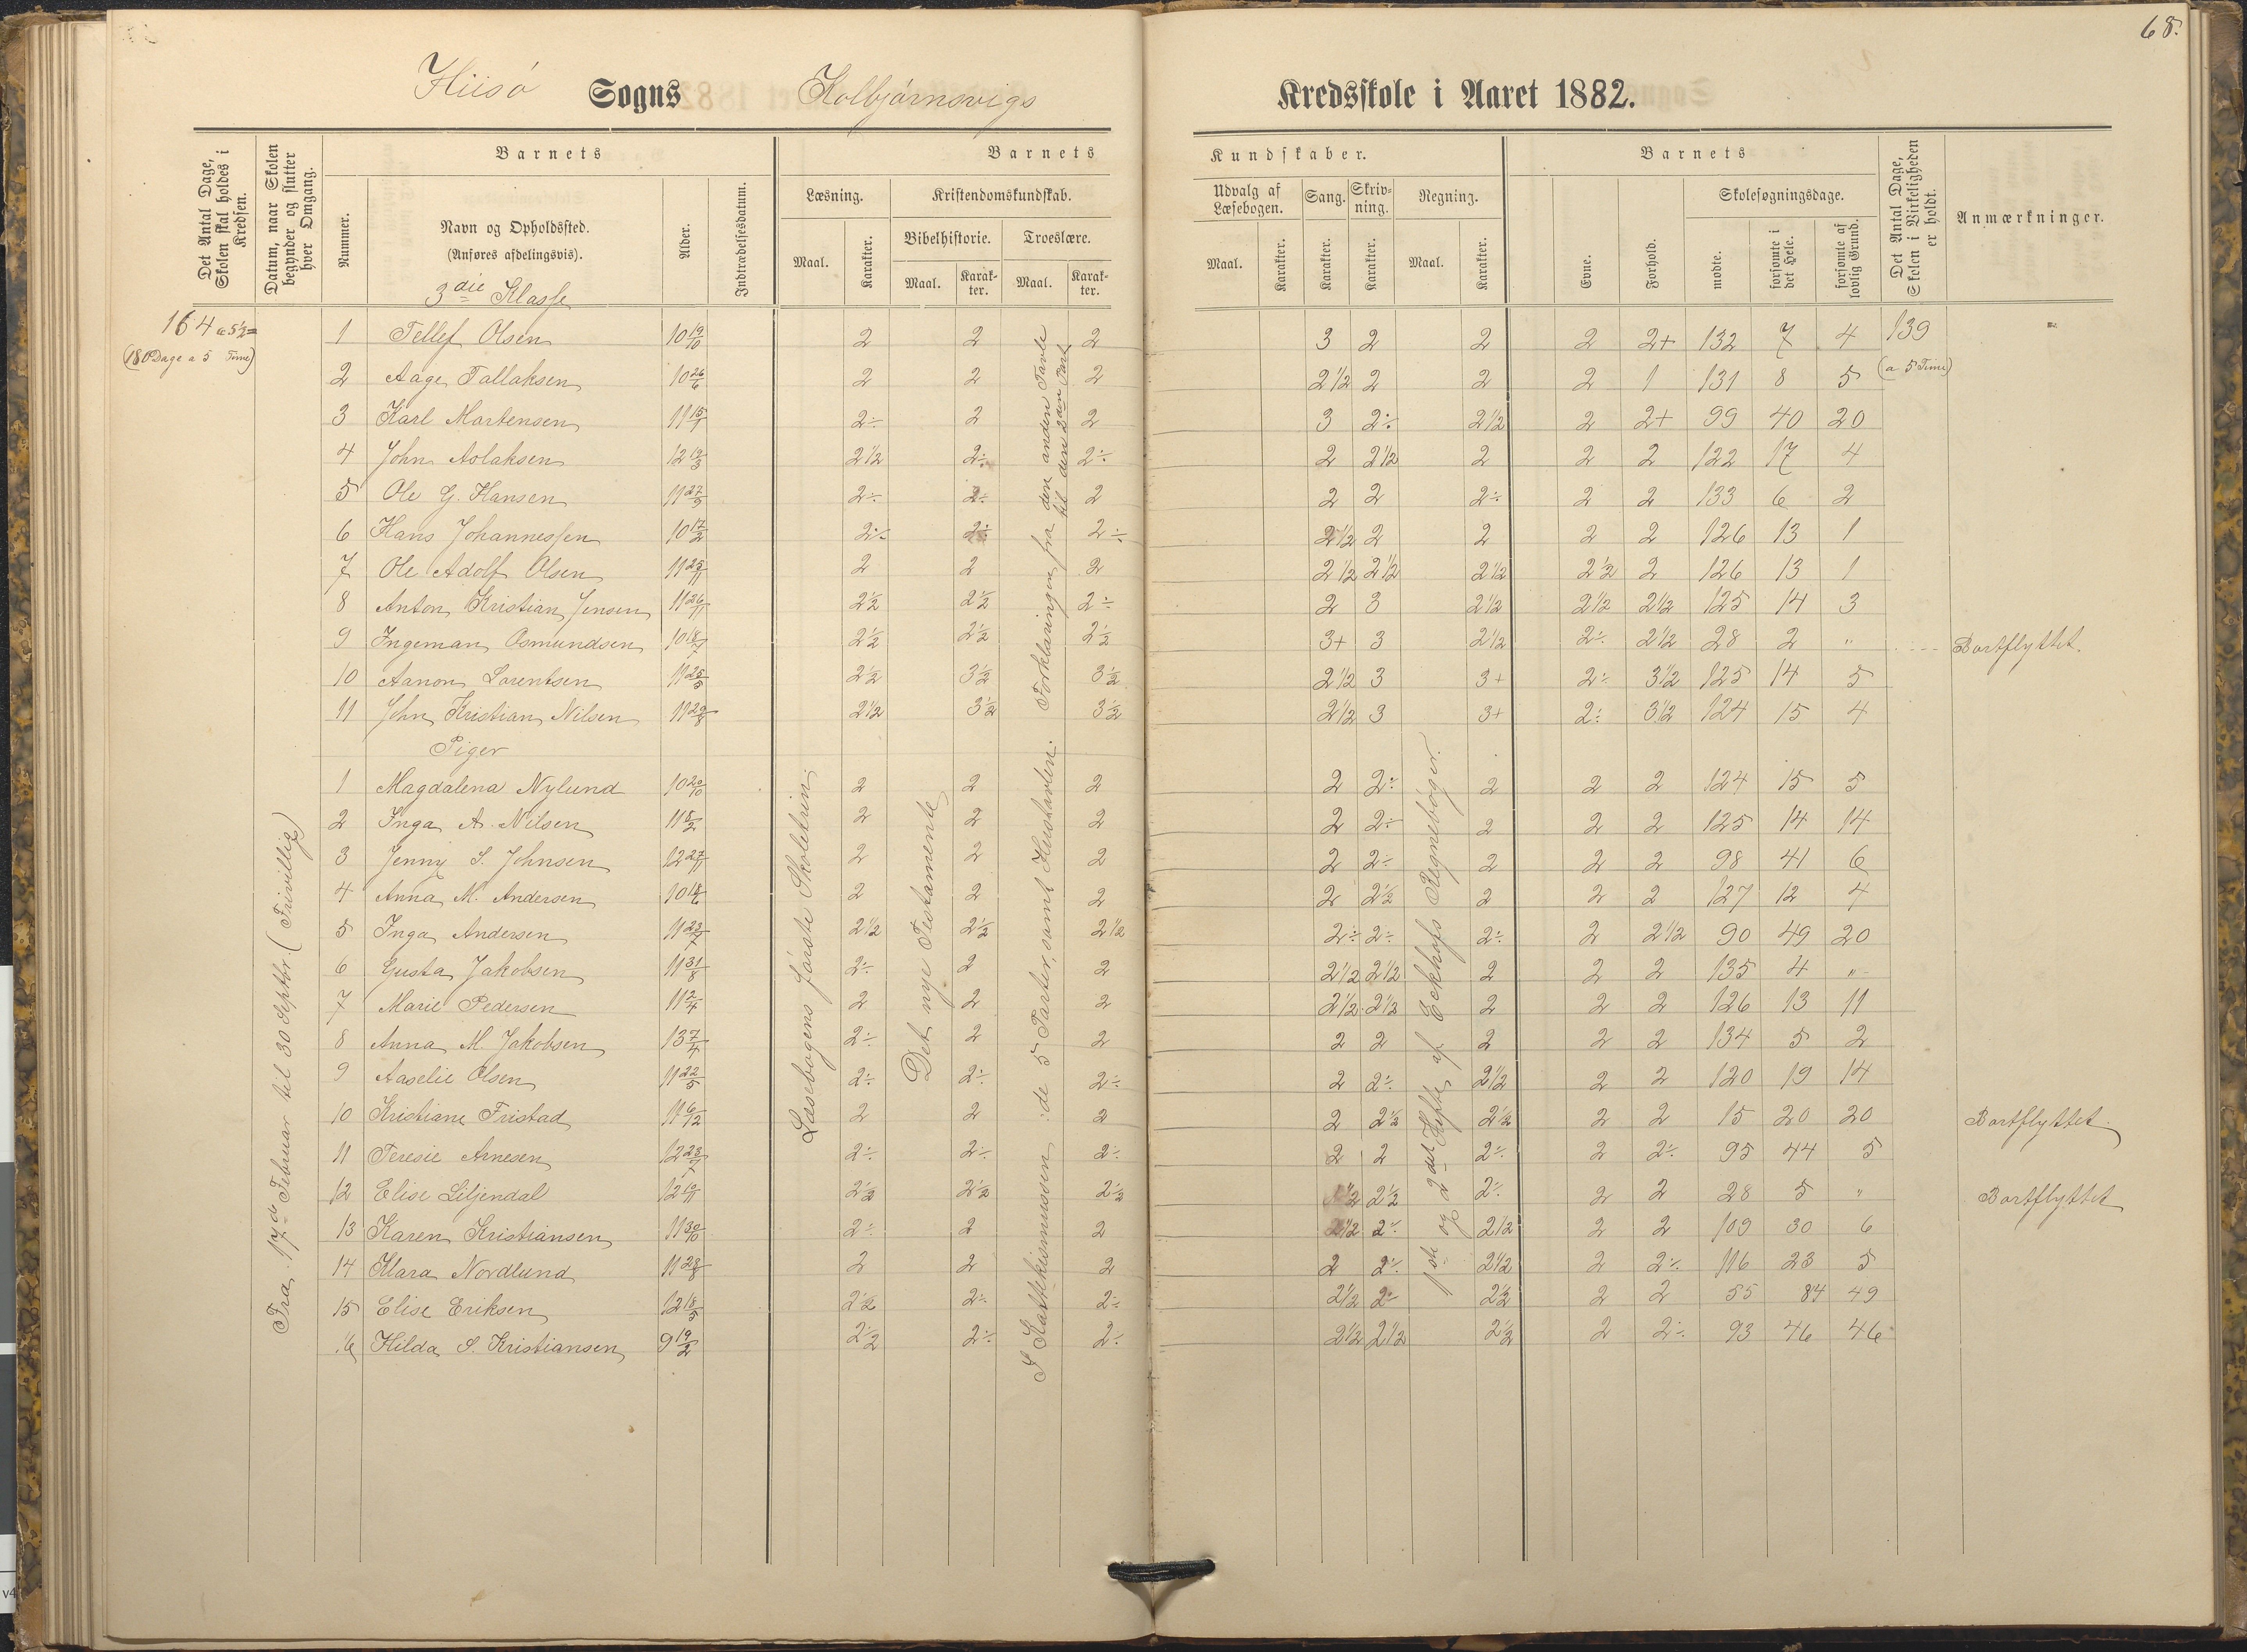 68.
Hiisö Sogns Kolbjörnsvigs Kredsskole i Aaret 1882.
Det Antal Dage, Skolen skal holdes i Kredsen.
Datum, naar Skolen begynder og slutter hver Omgang.
Barnets
Nummer.
Navn og Opholdssted.
(Anføres afdelingsvis).
3die Klasse
Alder.
Indtrædelsesdatum.
Barnets Kundskaber.
Læsning.
Maal. Karakter.
Kristendomskundskab.
Bibelhistorie. Troeslære.
Maal. Karakter. Maal. Karakter.
Udvalg af Læsebogen. Sang. Skrivning. Regning.
Maal. Karakter. Karakter. Karakter. Maal. Karakter.
Barnets
Evne. Forhold.
Skolesøgningsdage.
mødte. forsømte i det Hele. forsømte af lovlig Grund.
Det Antal Dage, Skolen i Virkeligheden er holdt.
Anmærkninger.
164 a 5½=
(180 Dage a 5 Time)
Fra 17de Februar til 30 Septbr. (Frivillig)
Læsebogens første Skoletrin
Det nye Testamente
I Katekismussen: de 5 Parter, samt Hustavlen. Forklaringen fra den anden Tavle til den 2den Part
1ste og 2det Hefte af Eckhofs Regnebøger.
1 Tellef Olsen 10 19/10 2 2 2 3 2 2 2 2+ 132 7 4 139
2 Aage Tallaksen 10 26/6 2 2 2 2½ 2 2 2 1 131 8 5 (a 5 Time)
3 Karl Martensen 11 15/1 2÷ 2 2 3 2÷ 2½ 2 2+ 99 40 20
4 John Aslaksen 12 19/3 2½ 2÷ 2÷ 2 2½ 2 2 2 122 17 4
5 Ole G. Hansen 11 27/9 2÷ 2÷ 2 2 2 2÷ 2 2 133 6 2
6 Hans Johannessen 10 17/2 2÷ 2÷ 2÷ 2½ 2 2 2 2 126 13 1
7 Ole Adolf Olsen 11 25/11 2 2 2 2½ 2½ 2½ 2½ 2 126 13 1
8 Anton Kristian Jensen 11 26/11 2½ 2½ 2÷ 2 3 2½ 2½ 2½ 125 14 3
9 Ingeman Osmundsen 10 18/7 2½ 2½ 2½ 3+ 3 2½ 2÷ 2½ 28 2 " Bortflyttet.
10 Aanon Lorentsen 11 25/5 2½ 3½ 3½ 2½ 3 3+ 2÷ 3½ 125 14 5
11 John Kristian Nilsen 11 29/8 2½ 3½ 3½ 2½ 3 3+ 2÷ 3½ 124 15 4
Piger
1 Magdalena Nylund 10 20/10 2 2 2 2 2÷ 2 2 2 124 15 5
2 Inga A. Nilsen 11 8/2 2 2 2 2 2÷ 2 2 2 125 14 14
3 Jenny S. Johnsen 12 27/11 2 2 2 2 2÷ 2 2 2 98 41 6
4 Anna M. Andersen 10 18/6 2 2 2 2 2½ 2 2 2 127 12 4
5 Inga Andersen 11 23/7 2½ 2½ 2½ 2÷ 2÷ 2÷ 2 2½ 90 49 20
6 Gusta Jakobsen 11 31/8 2÷ 2 2 2½ 2½ 2 2 2 135 4 "
7 Marie Pedersen 11 2/4 2 2 2 2½ 2½ 2 2 2 126 13 11
8 Anna M. Jakobsen 13 7/4 2÷ 2 2 2 2 2 2 2 134 5 2
9 Aaselie Olsen 11 22/5 2÷ 2÷ 2÷ 2 2÷ 2½ 2 2 120 19 14
10 Kristiane Fristad 11 6/12 2 2 2 2 2½ 2½ 2 2 15 20 20 Bortflyttet.
11 Teresie Arnesen 12 23/7 2÷ 2÷ 2÷ 2 2 2÷ 2 2÷ 95 44 5
12 Elise Liljendal 12 19/11 2½ 2½ 2½ 2½ 2÷ 2 2 28 5 " Bortflyttet
13 Karen Kristiansen 11 30/10 2÷ 2 2 2½ 2÷ 2½ 2 2 109 30 6
14 Klara Nordlund 11 28/8 2 2 2 2 2÷ 2½ 2 2÷ 116 23 5
15 Elise Eriksen 12 18/5 2½ 2÷ 2÷ 2½ 2÷ 2½ 2 2 55 84 49
16 Hilda S. Kristiansen 9 19/2 2½ 2÷ 2÷ 2½ 2½ 2½ 2 2÷ 93 46 46